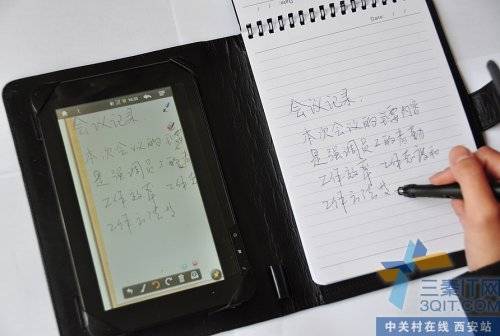 会议记录
本次会议的
是强调员工的
工作效率
会议记录:
本次会议的主要内容
是强调员工的考勤
工作效率 工作态度和
工作
Date:
三秦IT网
3QIT.COM
中关村在线 西安站